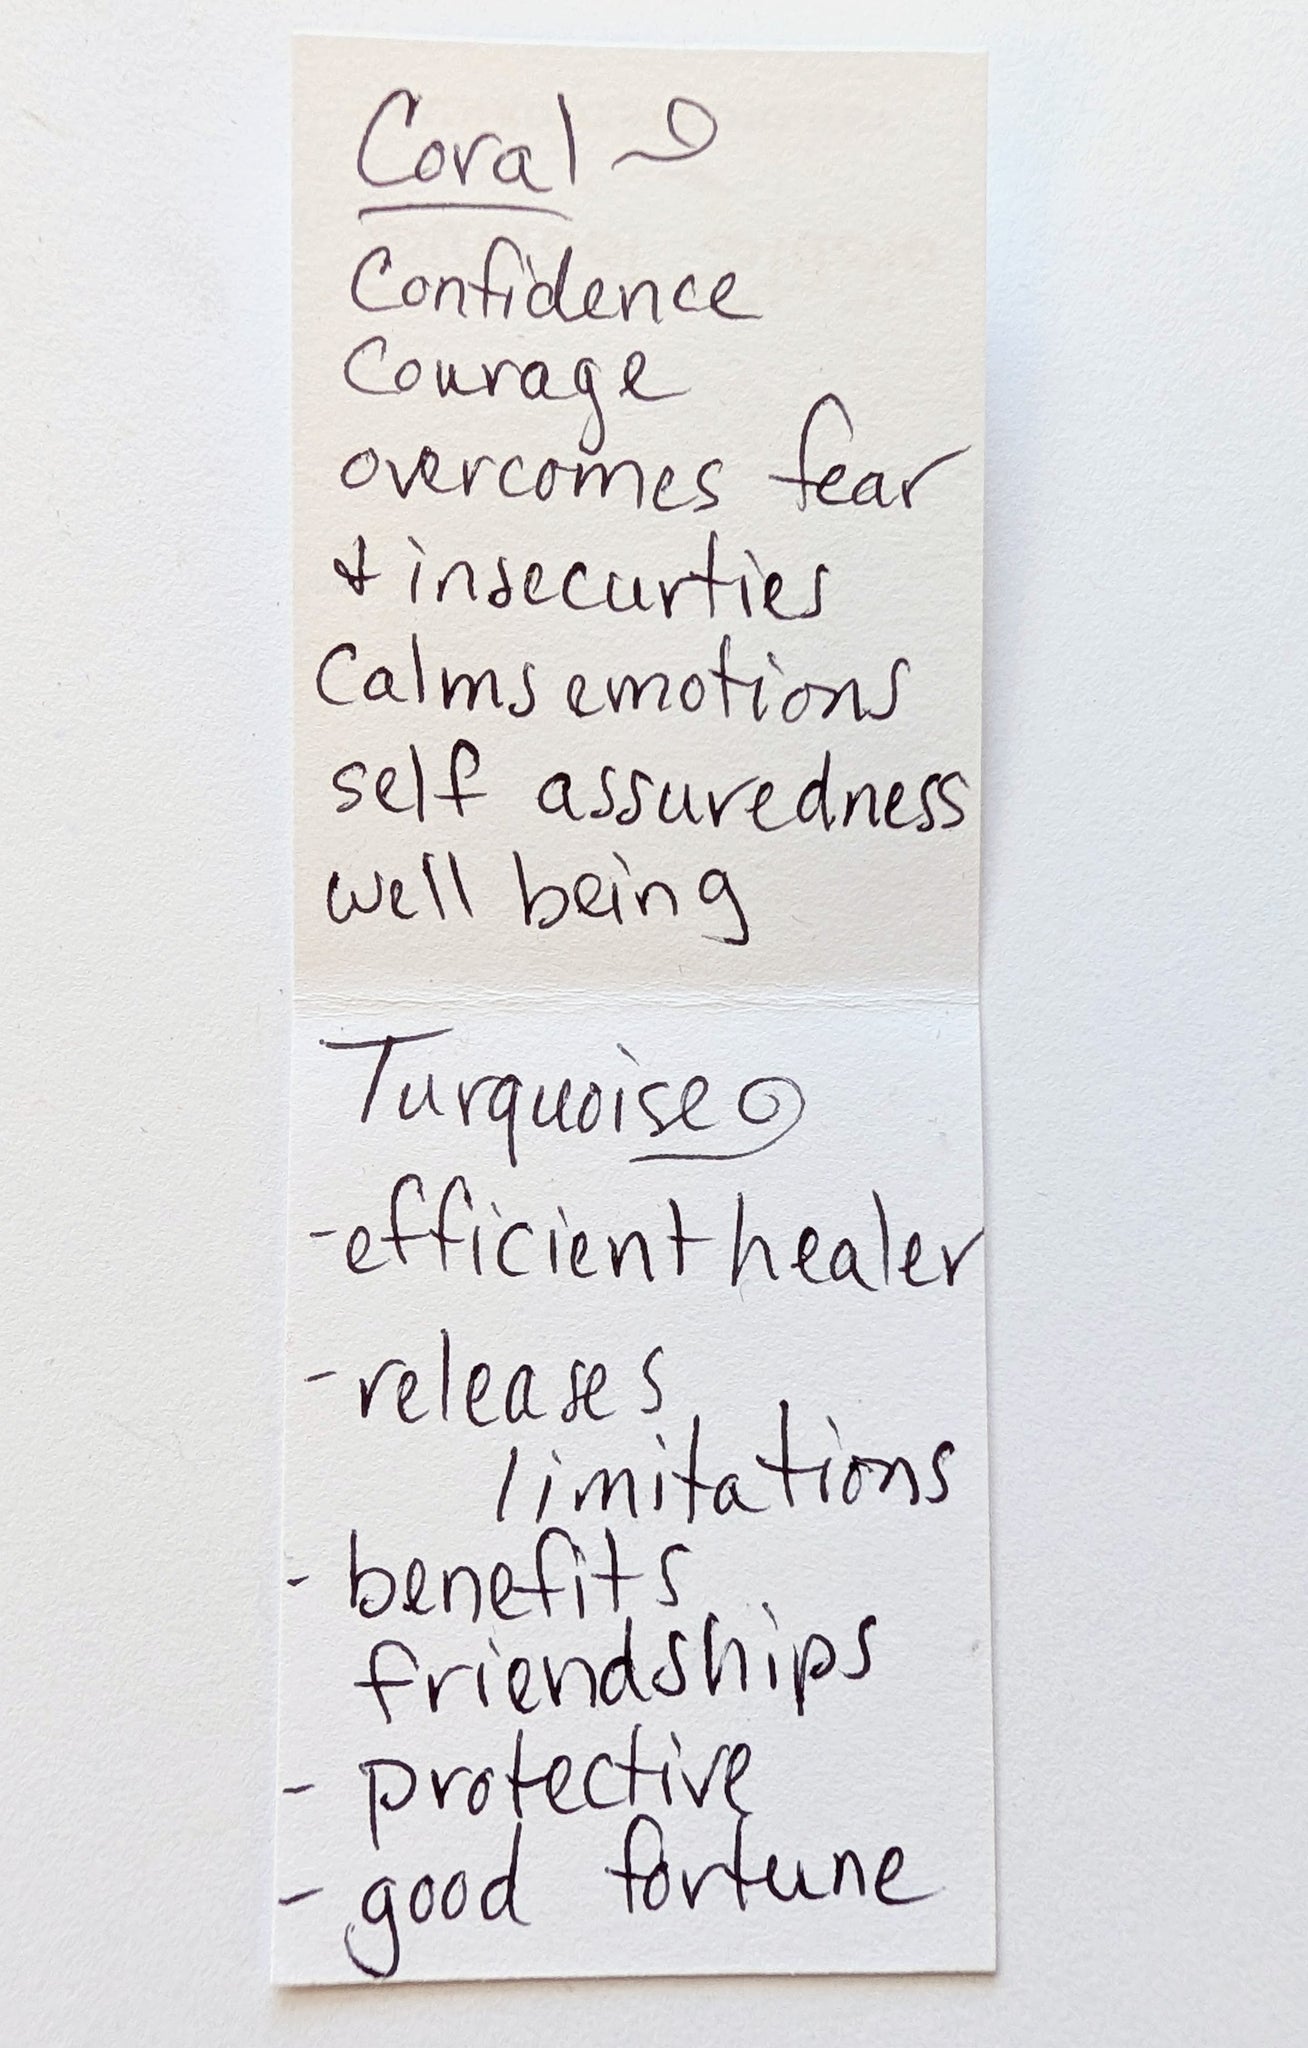 Coral
Confidence
Courage
overcomes fear
& insecurties
Calms emotions
self assuredness
well being
Turquoise
- efficient healer
- releases
limitations
- benefits
friendships
- protective
- good fortune